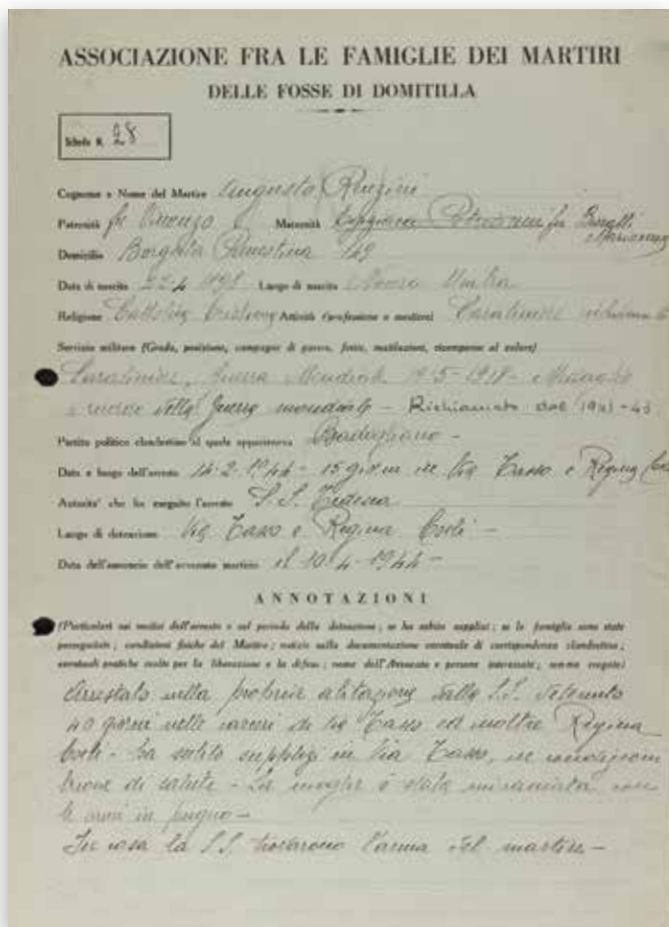 ASSOCIAZIONE FRA LE FAMIGLIE DEI MARTIRI
DELLE FOSSE DI DOMITILLA
Scheda N. 28
Cognome e Nome del Martire Augusto Renzini
Paternità fu Vincenzo Maternità fu
Domicilio Borgata Prenestina 149
Data di nascita 1898 Luogo di nascita Nocera Umbra
Religione Cattolica Cristiana Attività (professione o mestiere) Carabiniere
Servizio militare (Grado, posizione, campagne di guerra, ferite, mutilazioni, ricompense al valore)
Carabiniere, Guerra Mondiale 1915-1918 -
della Guerra mondiale - Richiamato dal 1941-43
Partito politico clandestino al quale apparteneva Badogliano -
Data e luogo dell'arresto 14-2-1944 - 15 giorni in Via Tasso e Regina
Autorita' che ha eseguito l'arresto S.S. Tedesca
Luogo di detenzione Via Tasso e Regina Coeli -
Data dell'annuncio dell'avvenuto martirio il 10-4-1944 -
ANNOTAZIONI
(Particolari sui motivi dell'arresto e sul periodo della detenzione; se ha subito supplizi; se la famiglia sono state
perseguitate; condizioni fisiche del Martire; notizie sulla documentazione eventuale di corrispondenza clandestina;
eventuali pratiche svolte per la liberazione e la difesa; nome dell'Avvocato e persone interessate; somme erogate)
Arrestato nella propria abitazione dalle S.S. detenuto
40 giorni nelle carceri di Via Tasso ed inoltre Regina
Coeli - ha subito supplizi in Via Tasso, in condizioni
buone di salute - La moglie è stata minacciata con
le armi in pugno -
In casa la S.S. trovarono l'arma del martire -